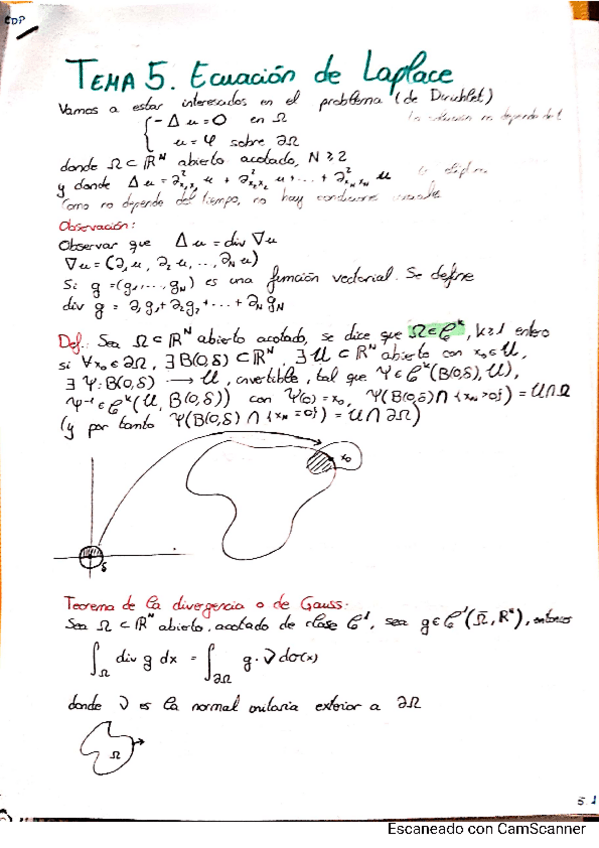 EDP
TEMA 5. Ecuación de Laplace
Vamos a estar interesados en el problema (de Dirichlet)
{ -Δu = 0 en Ω
u = φ sobre ∂Ω
donde Ω ⊂ ℝᴺ abierto acotado, N ≥ 2
y donde Δu = ∂²ₓ₁ₓ₁ u + ∂²ₓ₂ₓ₂ u + ... + ∂²_{x_N x_N} u
Como no depende del tiempo, no hay condiciones
Observación:
Observar que Δu = div ∇u
∇u = (∂₁u, ∂₂u, ..., ∂_N u)
Si g = (g₁, ..., g_N) es una función vectorial. Se define
div g = ∂₁g₁ + ∂₂g₂ + ... + ∂_N g_N
Def.: Sea Ω ⊂ ℝᴺ abierto acotado, se dice que Ω ∈ 𝒞ᵏ, k ≥ 1 entero
si ∀x₀ ∈ ∂Ω, ∃ B(0,δ) ⊂ ℝᴺ, ∃ U ⊂ ℝᴺ abierto con x₀ ∈ U,
∃ Ψ: B(0,δ) → U, invertible, tal que Ψ ∈ 𝒞ᵏ(B(0,δ), U),
Ψ⁻¹ ∈ 𝒞ᵏ(U, B(0,δ)) con Ψ(0) = x₀, Ψ(B(0,δ) ∩ {x_N > 0}) = U ∩ Ω
(y por tanto Ψ(B(0,δ) ∩ {x_N = 0}) = U ∩ ∂Ω)
x₀
δ
Teorema de la divergencia o de Gauss.
Sea Ω ⊂ ℝᴺ abierto, acotado de clase 𝒞¹, sea g ∈ 𝒞¹(Ω̄, ℝᴺ), entonces
∫_Ω div g dx = ∫_∂Ω g · ν dσ(x)
donde ν es la normal unitaria exterior a ∂Ω
Ω
5.1
Escaneado con CamScanner